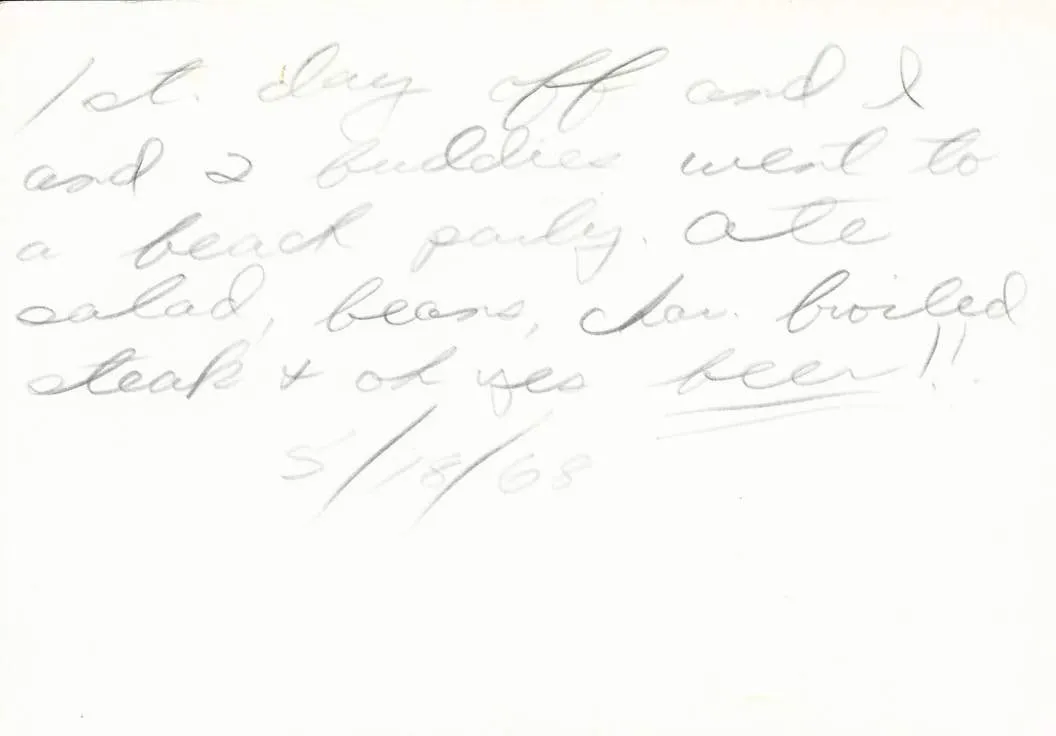 1st. day off and I
and 2 buddies went to
a beach party. Ate
salad, beans, char. broiled
steak + oh yes beer!!
5/18/68